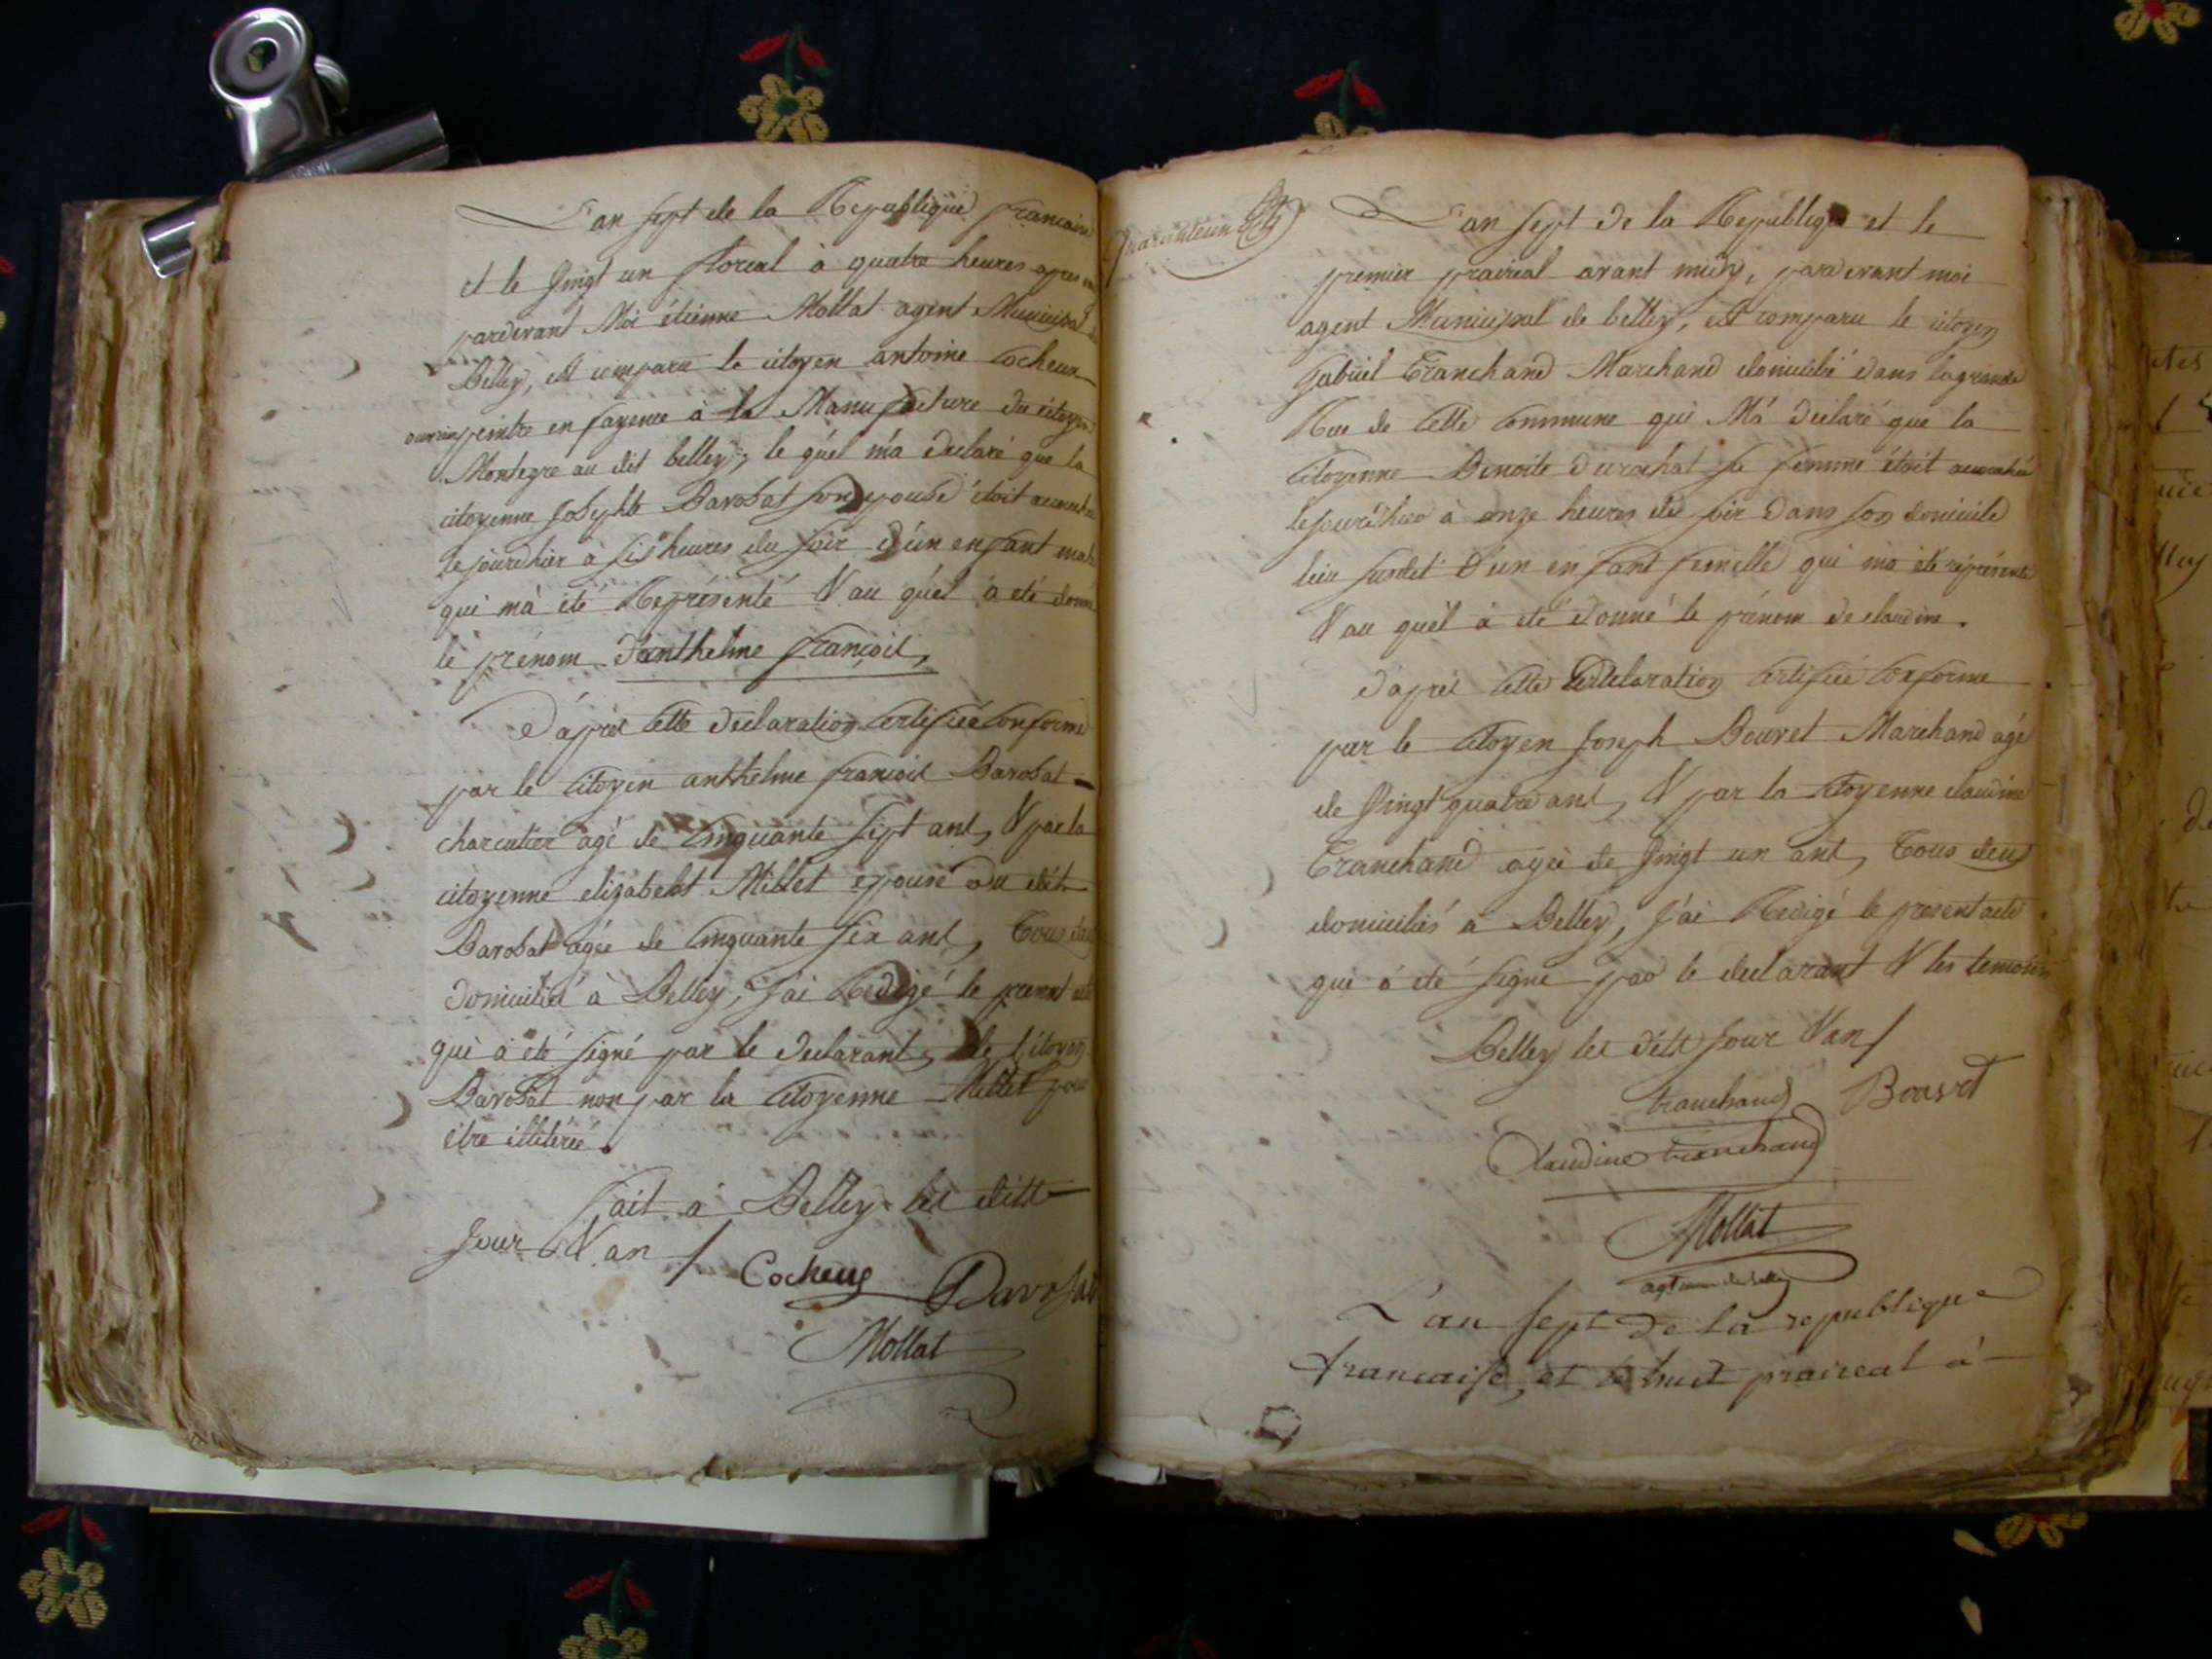 L'an sept de la Republique francaise
et le vingt un floreal à quatre heures apres
pardevant Moi étienne Mollat agent Municipal
Belley, est comparu le citoyen antoine Cocheux
ouvrier peintre en fayence à la Manufacture du citoyen
Montegre au dit belley, le quel m'a declaré que la
citoyenne Josephte Barobat son epouse étoit accouchée
le jourdhier à six heures du soir d'un enfant male
qui m'à été Représenté & au quel à eté donné
le prénom d'anthelme françois,
D'après cette declaration certifiée conforme
par le citoyen anthelme francois Barobat
charcutier agé de Cinquante sept ans, & par la
citoyenne elizabeht Millet epouse du dit
Barobat agée de Cinquante six ans, Tous deux
domiciliés à Belley, j'ai Redigé le present acte
qui à eté signé par le declarant, le citoyen
Barobat non par la Citoyenne Millet pour
être illitérée.
fait à Belley les dits
Jour & an
Cocheux Barobat
Mollat
L'an sept de la Republique et le
premier prairial avant midy, pardevant moi
agent Municipal de belley, est comparu le citoyen
Gabriel Tranchand Marchand domicilié dans la grande
Rue de Cette Commune qui M'à declaré que la
Citoyenne Benoite Durochat sa femme étoit accouchée
le jourd'hier à onze heures du soir dans son domicile
lieu susdit d'un enfant femelle qui ma été représenté
& au quel à été donné le prénom de claudine.
d'après cette declaration certifiée conforme
par le citoyen Joseph Bouvet Marchand agé
de vingt quatre ans, & par la citoyenne claudine
Tranchand agée de vingt un ans, Tous deux
domiciliés à Belley, j'ai Redigé le present acte
qui à eté signé par le declarant & les temoins
Belley les dits Jour & an
tranchand Bouvet
Claudine tranchand
Mollat
L'an sept de la republique
francaise, et le huit prairéal à